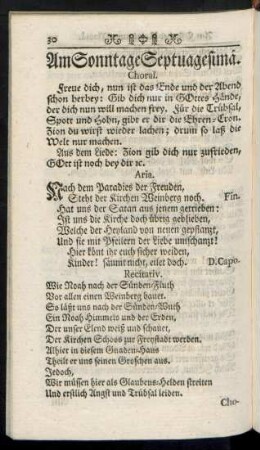 30
Am Sonntage Septuagesimä.
Choral.
Freue dich, nun ist das Ende und der Abend
schon herbey: Gib dich nur in GOttes Hände,
der dich nun will machen frey. Für die Trübsal,
Spott und Hohn, gibt er dir die Ehren-Cron.
Zion du wirst wieder lachen; drum so laß die
Welt nur machen.
Aus dem Liede: Zion gib dich nur zufrieden,
GOtt ist noch bey dir ꝛc.
Aria.
Nach dem Paradies der Freuden,
Steht der Kirchen Weinberg noch. Fin.
Hat uns der Satan aus jenem getrieben:
Ist uns die Kirche doch übrig geblieben,
Welche der Heyland von neuen gepflantzt,
Und sie mit Pfeilern der Liebe umschantzt!
Hier könt ihr euch sicher weiden,
Kinder! säumt nicht, eilet doch. D. Capo.
Recitativ.
Wie Noah nach der Sünden-Fluth
Vor allen einen Weinberg bauet.
So läßt uns nach der Sünden-Wuth
Ein Noah Himmels und der Erden,
Der unser Elend weiß und schauet,
Der Kirchen Schoos zur Freystadt werden.
Alhier in diesem Gnaden-Haus
Theilt er uns seinen Groschen aus.
Jedoch,
Wir müssen hier als Glaubens-Helden streiten
Und erstlich Angst und Trübsal leiden.
Cho-